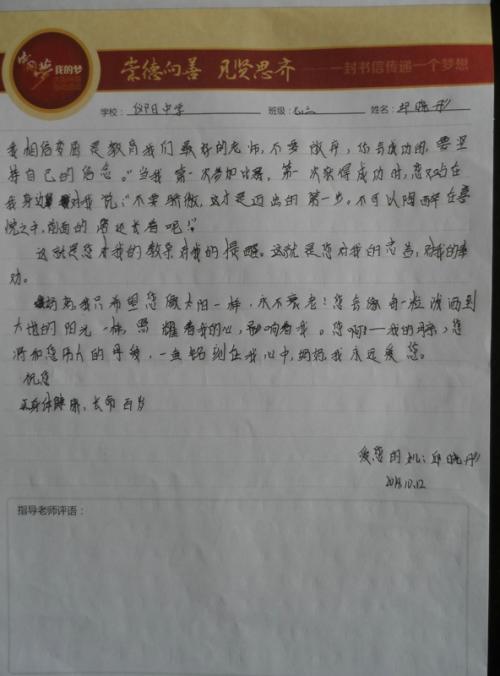 中国梦 我的梦
崇德向善 见贤思齐
一封书信传递一个梦想
学校：阳中学 班级： 姓名：晓彤
我相信变困是教育我们最好的老师，不要放弃，你会成功的，要坚
持自己的信念。”当我第一次参加比赛，第一次获得成功时，您又站在
我身边对我说：“不要骄傲，这才是迈出的第一步。不可以陶醉在喜
悦之中，前面的路还长着呢！”
这就是您对我的教导对我的提醒。这就是您对我的忠告，对我的奉
劝。
妈妈我只希望您像太阳一样，永不衰老！您会像每一粒洒到
大地的阳光一样，照耀着我的心，影响着我。您啊！——我的母亲，您
将和您伟大的母亲，一直铭刻在我心中，妈妈我永远爱您。
祝您
身体健康，长命百岁
爱您的儿：晓彤
10.12
指导老师评语：